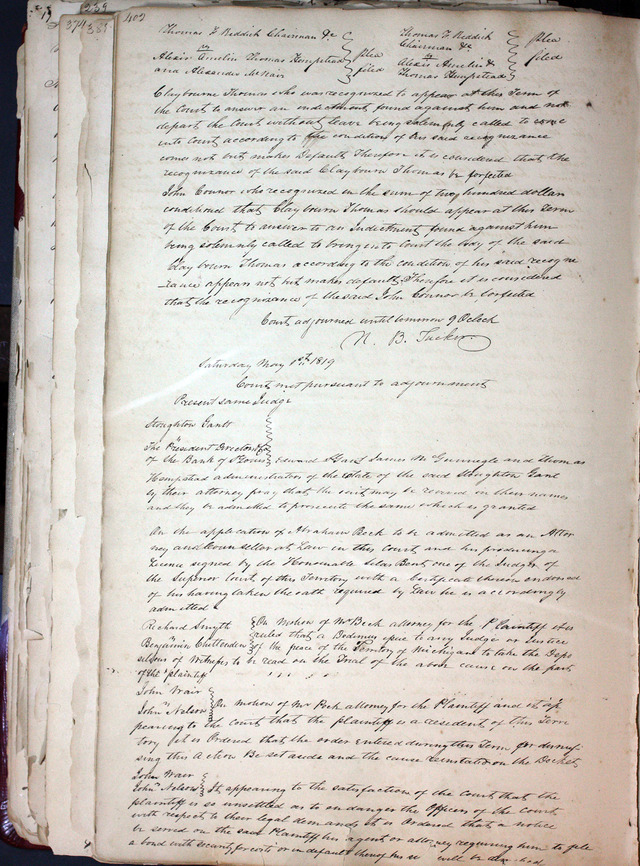 19
239
374 385
402
Thomas F Reddick Chairman &c
vs
Alexis Amelin Thomas Hempstead
and Alexander McNair
plea
filed
Thomas F Reddick
Chairman &c
vs
Alexis Amelin &
Thomas Hempstead
plea
filed
Claybourne Thomas who was recognized to appear at this Term of
the Court to answer an indictment found against him and not
depart the Court without leave being solemnly called to come
into Court according to the condition of his said recognizance
come not but makes Default Therefore it is considered that the
recognizance of the said Claybourn Thomas be forfeited
John Connor who recognized in the sum of two hundred dollars
conditioned that Claybourn Thomas should appear at this Term
of the Court to answer to an Indictment found against him
being solemnly called to bring into Court the body of the said
Claybourn Thomas according to the condition of his said recogni
zance appears not but makes default Therefore it is considered
that the recognizance of the said John Connor be forfeited
Court adjourned until tomorrow 9 Oclock
N. B. Tucker
Saturday May 1st 1819
Court met pursuant to adjournment
Present same Judge
Stoughton Gantt
vs
The President Directors &c
of the Bank of St Louis
Edward Hempstead James McGunnegle and Thomas
Hempstead administrators of the Estate of the said Stoughton Gant
by their attorney pray that the suit may be revived in their names
and they be admitted to prosecute the same which is granted
On the application of Abraham Beck to be admitted as an Attor
ney and Counsellor at Law in this Court and his producing a
Licence signed by the Honourable Silas Bent one of the Judges of
the Superior Court of this Territory with a Certificate thereon endorsed
of his having taken the oath required by Law he is accordingly
admitted
Richard Smyth
vs
Benjamin Chittenden
On Motion of Mr Beck attorney for the Plaintiff it is
ruled that a Dedimus issue to any Judge or Justice
of the peace of the Territory of Michigan to take the Depo
sitions of Witnesses to be read on the Trial of the above cause on the part
of the plaintiff
John Wair
vs
John Nelson
On motion of Mr Peck attorney for the Plaintiff and it ap
pearing to the Court that the plaintiff is a resident of this Terri
tory it is Ordered that the order entered during this Term for dismis
sing this Action Be set aside and the cause reinstated on the Docket
John Wair
vs
John Nelson
It appearing to the satisfaction of the Court that the
plaintiff is so unsettled as to endanger the Officers of the Court
with respect to their legal demands it is Ordered that a notice
be served on the said Plaintiff his agent or attorney requiring him to file
a bond with security for costs or in default thereof his suit will be